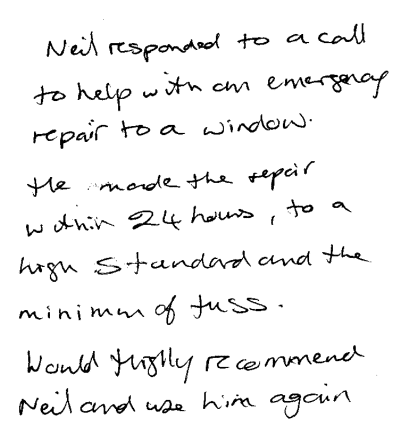 Neil responded to a call
to help with an emergency
repair to a window.
He made the repair
within 24 hours, to a
high standard and the
minimum of fuss.
Would highly recommend
Neil and use him again